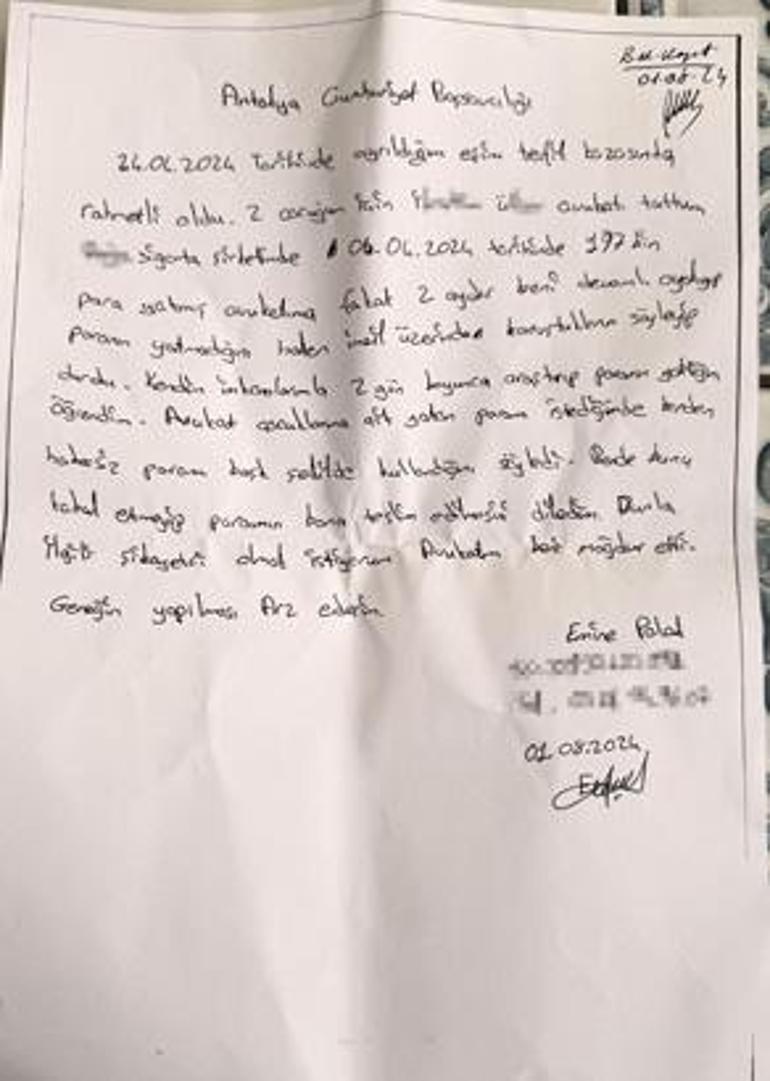 01.08.24
Antalya Cumhuriyet Başsavcılığı
tarihinde ayrıldığım eşim trafik kazasında
rahmetli oldu. 2 çocuğum için avukatı tuttum
sigorta şirketinde 06.04.2024 tarihinde 197 bin
para yatmış avukatıma fakat 2 aydır beni devamlı oyalayıp
paranın yatmadığını halen mail üzerinden konuştuklarını söyleyip
durdu. Kendim imkanlarımla 2 gün boyunca araştırıp paranın yattığını
öğrendim. Avukat çocuklarıma ait yatan paramı istediğimde benden
habersiz paramı şekilde kullandığını söyledi. Bende bunu
kabul etmeyip paramın bana teslim edilmesini diledim. Bununla
ilgili şikayetçi olmak istiyorum Avukatım beni mağdur etti.
Gereğin yapılması Arz ederim
Emine Polad
01.08.2024